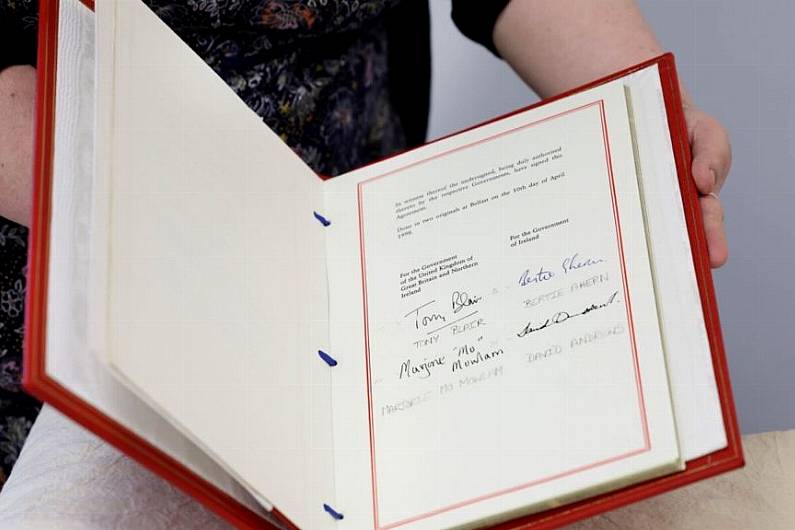 In witness thereof the undersigned, being duly authorised
thereto by the respective Governments, have signed this
Agreement.
Done in two originals at Belfast on the 10th day of April
1998.
For the Government
of the United Kingdom of
Great Britain and Northern
Ireland
For the Government
of Ireland
Tony Blair
TONY BLAIR
Bertie Ahern
BERTIE AHERN
Marjorie "Mo"
Mowlam
MARJORIE MO MOWLAM
David Andrews
DAVID ANDREWS